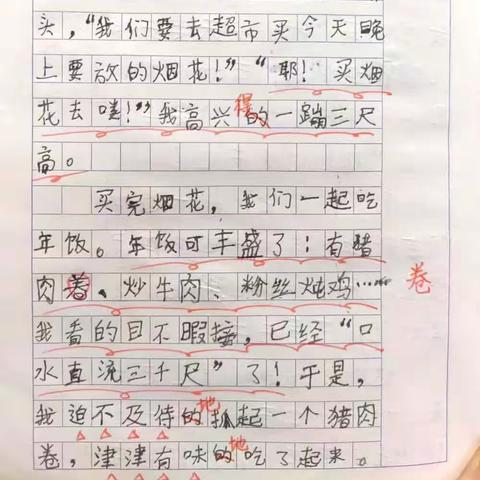 头，“我们要去超市买今天晚
上要放的烟花！”“耶！买烟
花去喽！”我高兴的一蹦三尺
得
高。
买完烟花，我们一起吃
年饭。年饭可丰盛了！有猪
肉着、炒牛肉、粉丝炖鸡……
卷
我看的目不暇接，已经“口
水直流三千尺”了！于是，
我迫不及待的抓起一个猪肉
地
卷，津津有味的吃了起来。
地